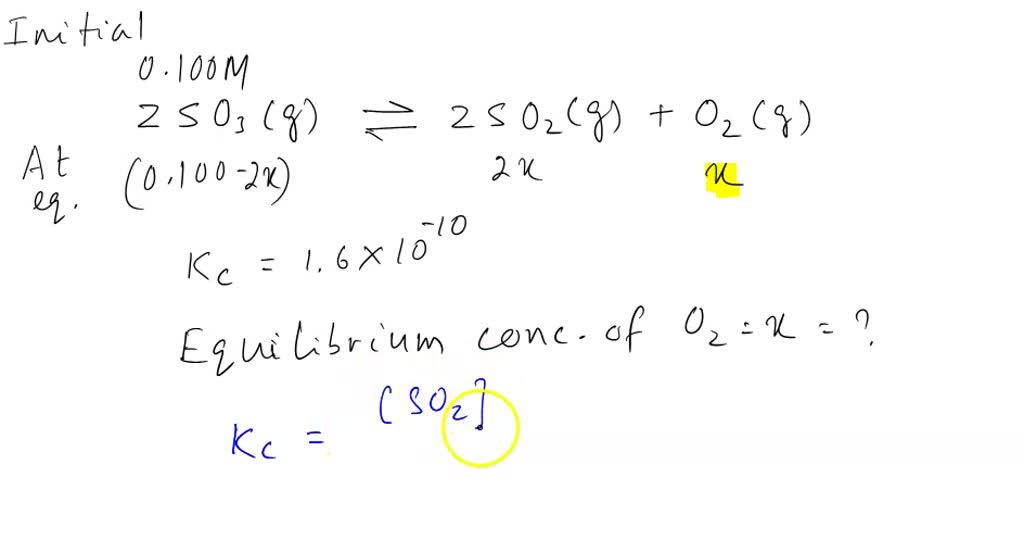 Initial
0.100M
2SO₃(g) ⇌ 2SO₂(g) + O₂(g)
At eq. (0.100-2x) 2x x
Kc = 1.6×10⁻¹⁰
Equilibrium conc. of O₂ = x = ?
Kc = [SO₂]